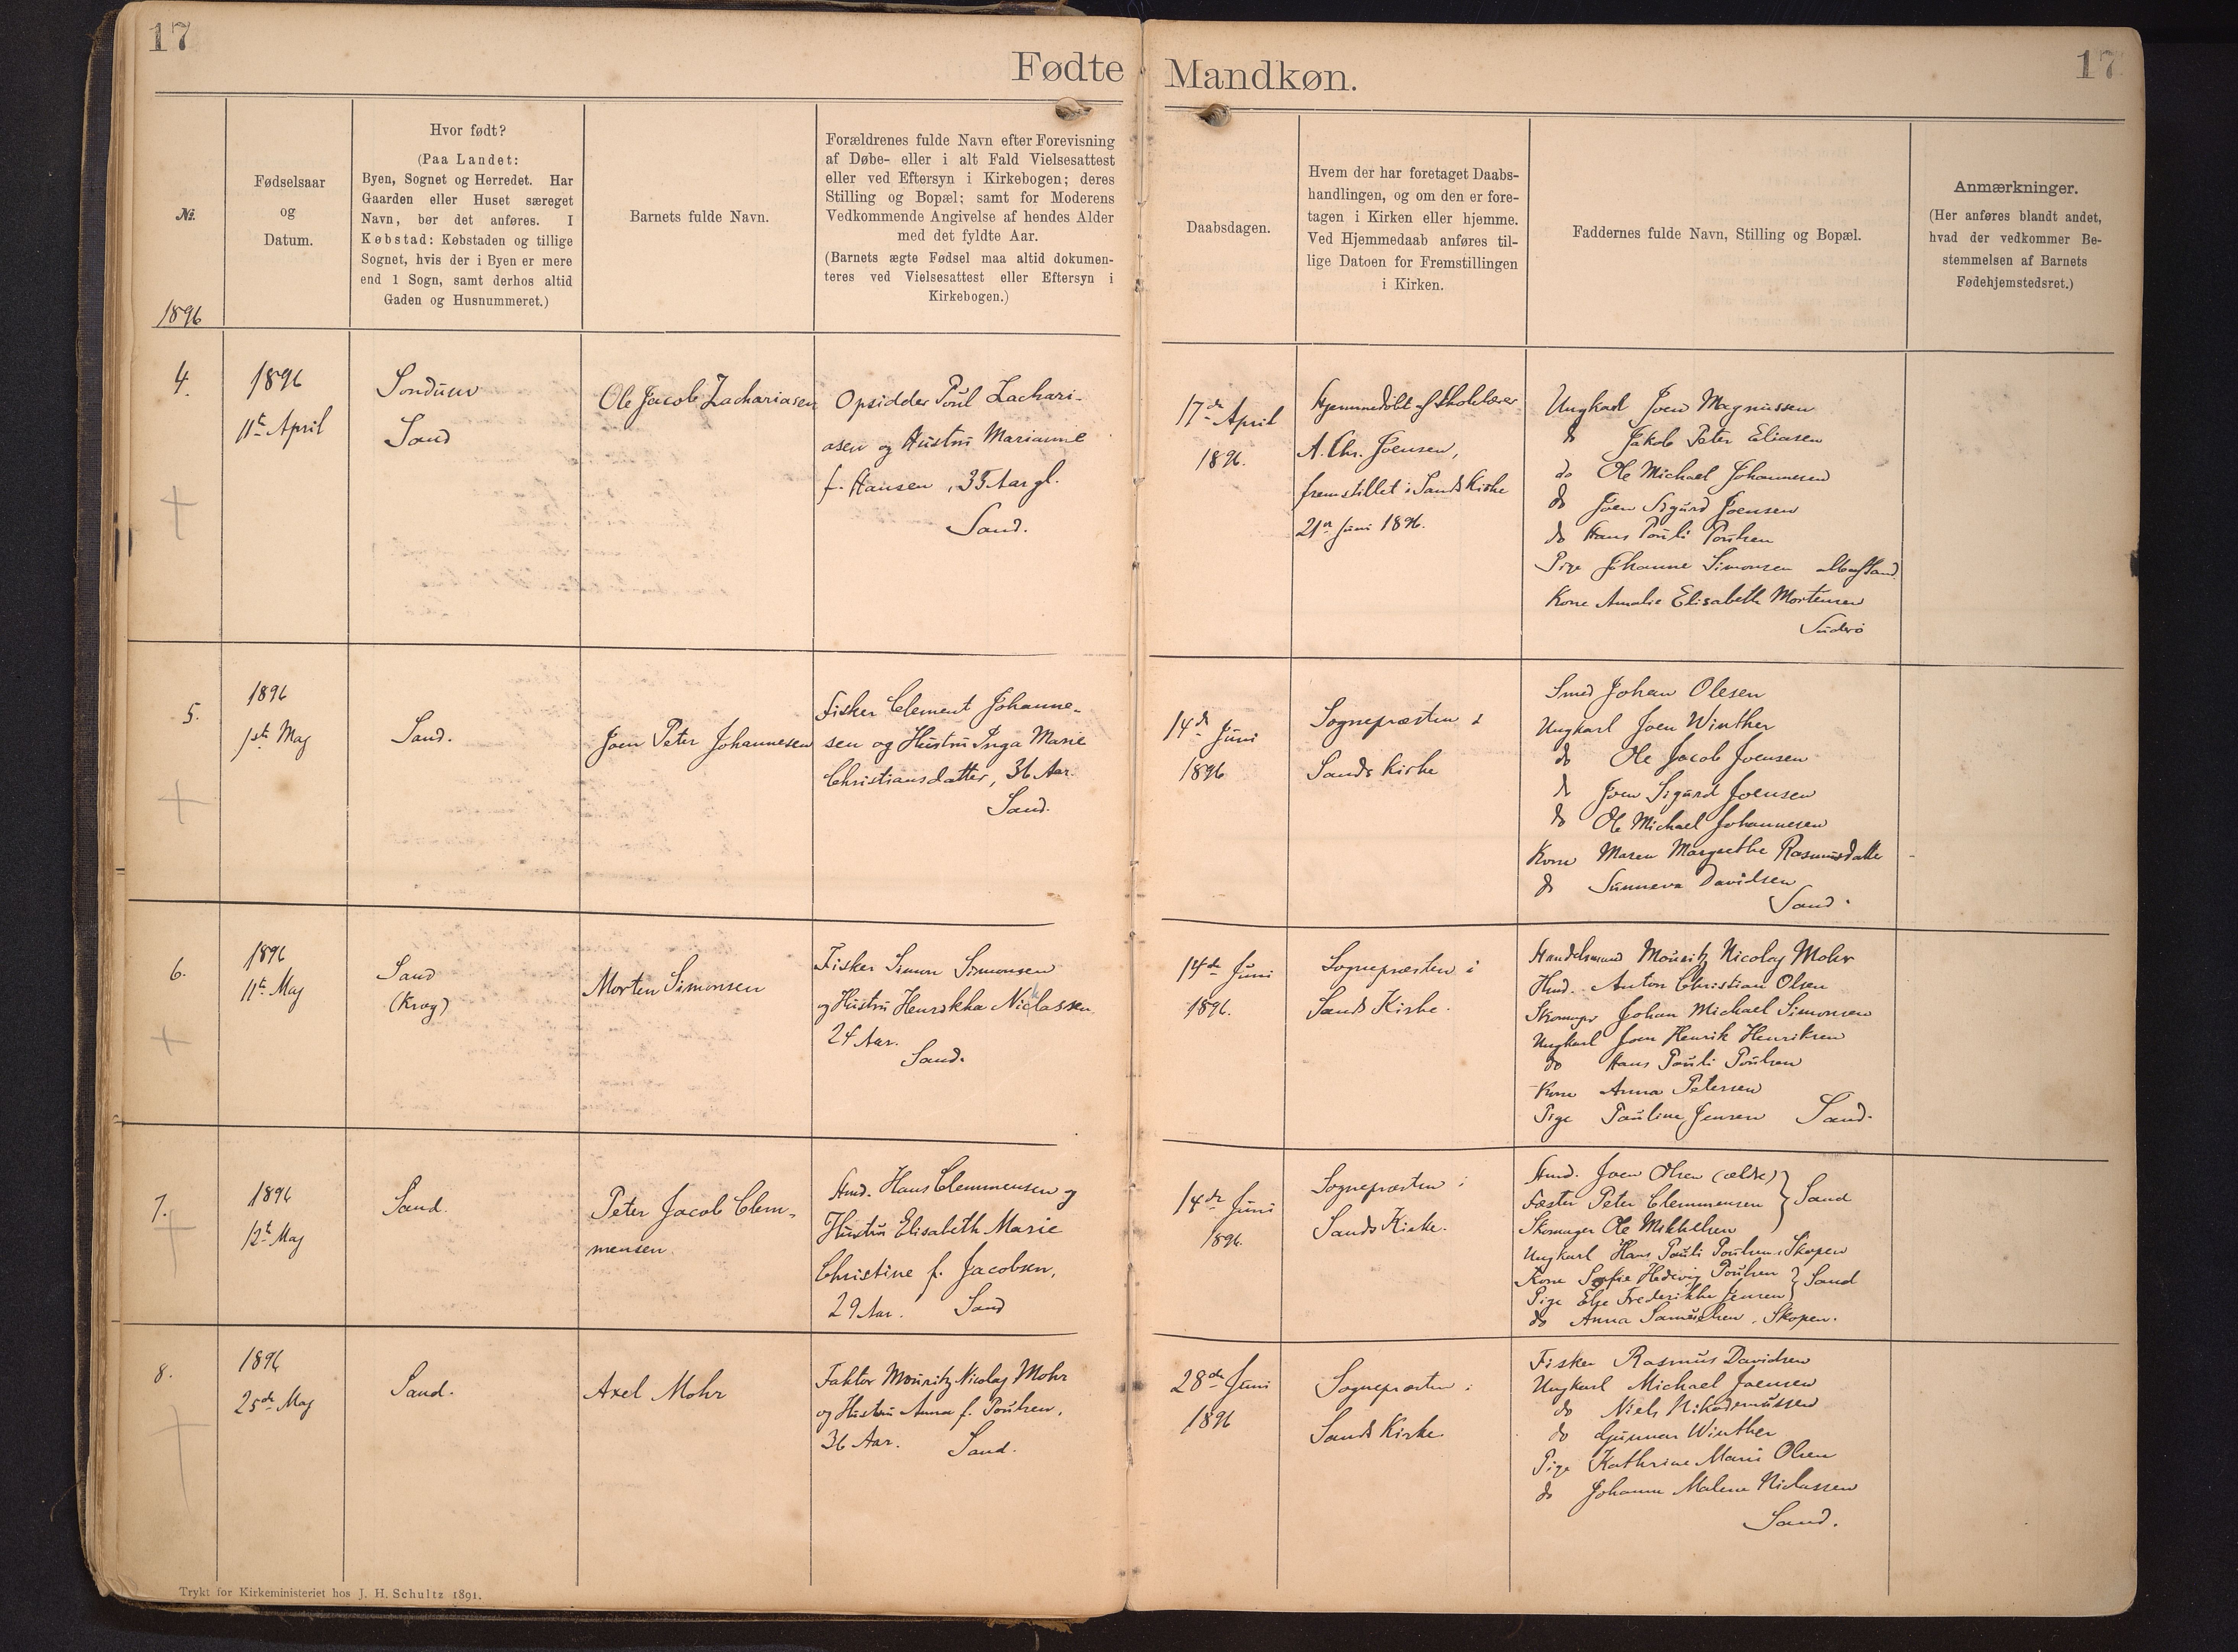 17
Fødte Mandkøn.
17
№.
1896
Fødselsaar
og
Datum.
Hvor født?
(Paa Landet:
Byen, Sognet og Herredet. Har
Gaarden eller Huset særeget
Navn, bør det anføres. I
Købstad: Købstaden og tillige
Sognet, hvis der i Byen er mere
end 1 Sogn, samt derhos altid
Gaden og Husnummeret.)
Barnets fulde Navn.
Forældrenes fulde Navn efter Forevisning
af Døbe- eller i alt Fald Vielsesattest
eller ved Eftersyn i Kirkebogen; deres
Stilling og Bopæl; samt for Moderens
Vedkommende Angivelse af hendes Alder
med det fyldte Aar.
(Barnets ægte Fødsel maa altid dokumen-
teres ved Vielsesattest eller Eftersyn i
Kirkebogen.)
Daabsdagen.
Hvem der har foretaget Daabs-
handlingen, og om den er fore-
tagen i Kirken eller hjemme.
Ved Hjemmedaab anføres til-
lige Datoen for Fremstillingen
i Kirken.
Faddernes fulde Navn, Stilling og Bopæl.
Anmærkninger.
(Her anføres blandt andet,
hvad der vedkommer Be-
stemmelsen af Barnets
Fødehjemstedsret.)
4.
1896
11te April
Sondum
Sand
Ole Jacob Zachariasen
Opsidder Poul Zachari-
asen og Hustru Marianne
f. Hansen, 35 Aar gl.
Sand.
17de April
1896.
Hjemmedøbt af Skolelærer
A. Chr. Joensen,
fremstillet i Sands Kirke
21de Juni 1896.
Ungkarl Joen Magnussen
do Jakob Peter Eliasen
do Ole Michael Johannesen
do Joen Sigurd Joensen
do Hans Pouli Poulsen
Pige Johanne Simonsen alle af Sand
Kone Amalie Elisabeth Mortensen
Suderö
5.
1896
1ste Maj
Sand.
Joen Peter Johannesen
Fisker Clement Johanne-
sen og Hustru Inga Marie
Christiansdatter, 36 Aar.
Sand.
14de Juni
1896
Sognepræsten i
Sands Kirke
Smed Johan Olesen
Ungkarl Joen Winther
do Ole Jacob Joensen
do Joen Sigurd Joensen
do Ole Michael Johannesen
Kone Maren Margrethe Rasmusdatte
do Sunneva Davidsen
Sand.
6.
1896
11te Maj
Sand
(Krog)
Morten Simonsen
Fisker Simon Simonsen
og Hustru Henrikka Niclassen
24 Aar.
Sand.
14de Juni
1896.
Sognepræsten i
Sands Kirke.
Handelsmand Mouritz Nicolaj Mohr
Hmd. Anton Christian Olsen
Skomager Johan Michael Simonsen
Ungkarl Joen Henrik Henriksen
do Hans Pouli Poulsen
Kone Anna Petersen
Pige Pauline Jensen Sand.
7.
1896
12te Maj
Sand.
Peter Jacob Clem-
mensen
Hmd. Hans Clemmensen og
Hustru Elisabeth Marie
Christine f. Jacobsen,
29 Aar. Sand
14de Juni
1896.
Sognepræsten i
Sands Kirke.
Hmd. Joen Olsen (ældre)
Fæster Peter Clemmensen } Sand
Skomager Ole Mikkelsen
Ungkarl Hans Pouli Poulsen, Skopen
Kone Sofie Hedevig Poulsen } Sand
Pige Else Frederikke Jensen
do Anna Samuelsen, Skopen.
8.
1896
25de Maj
Sand.
Axel Mohr
Faktor Mouritz Nicolaj Mohr
og Hustru Anna f. Poulsen,
36 Aar. Sand.
28de Juni
1896
Sognepræsten i
Sands Kirke.
Fisker Rasmus Davidsen
Ungkarl Michael Joensen
do Niels Nikodemussen
do Gunnar Winther
Pige Kathrine Marie Olsen
do Johanne Malene Niclassen
Sand.
Trykt for Kirkeministeriet hos J. H. Schultz 1891.